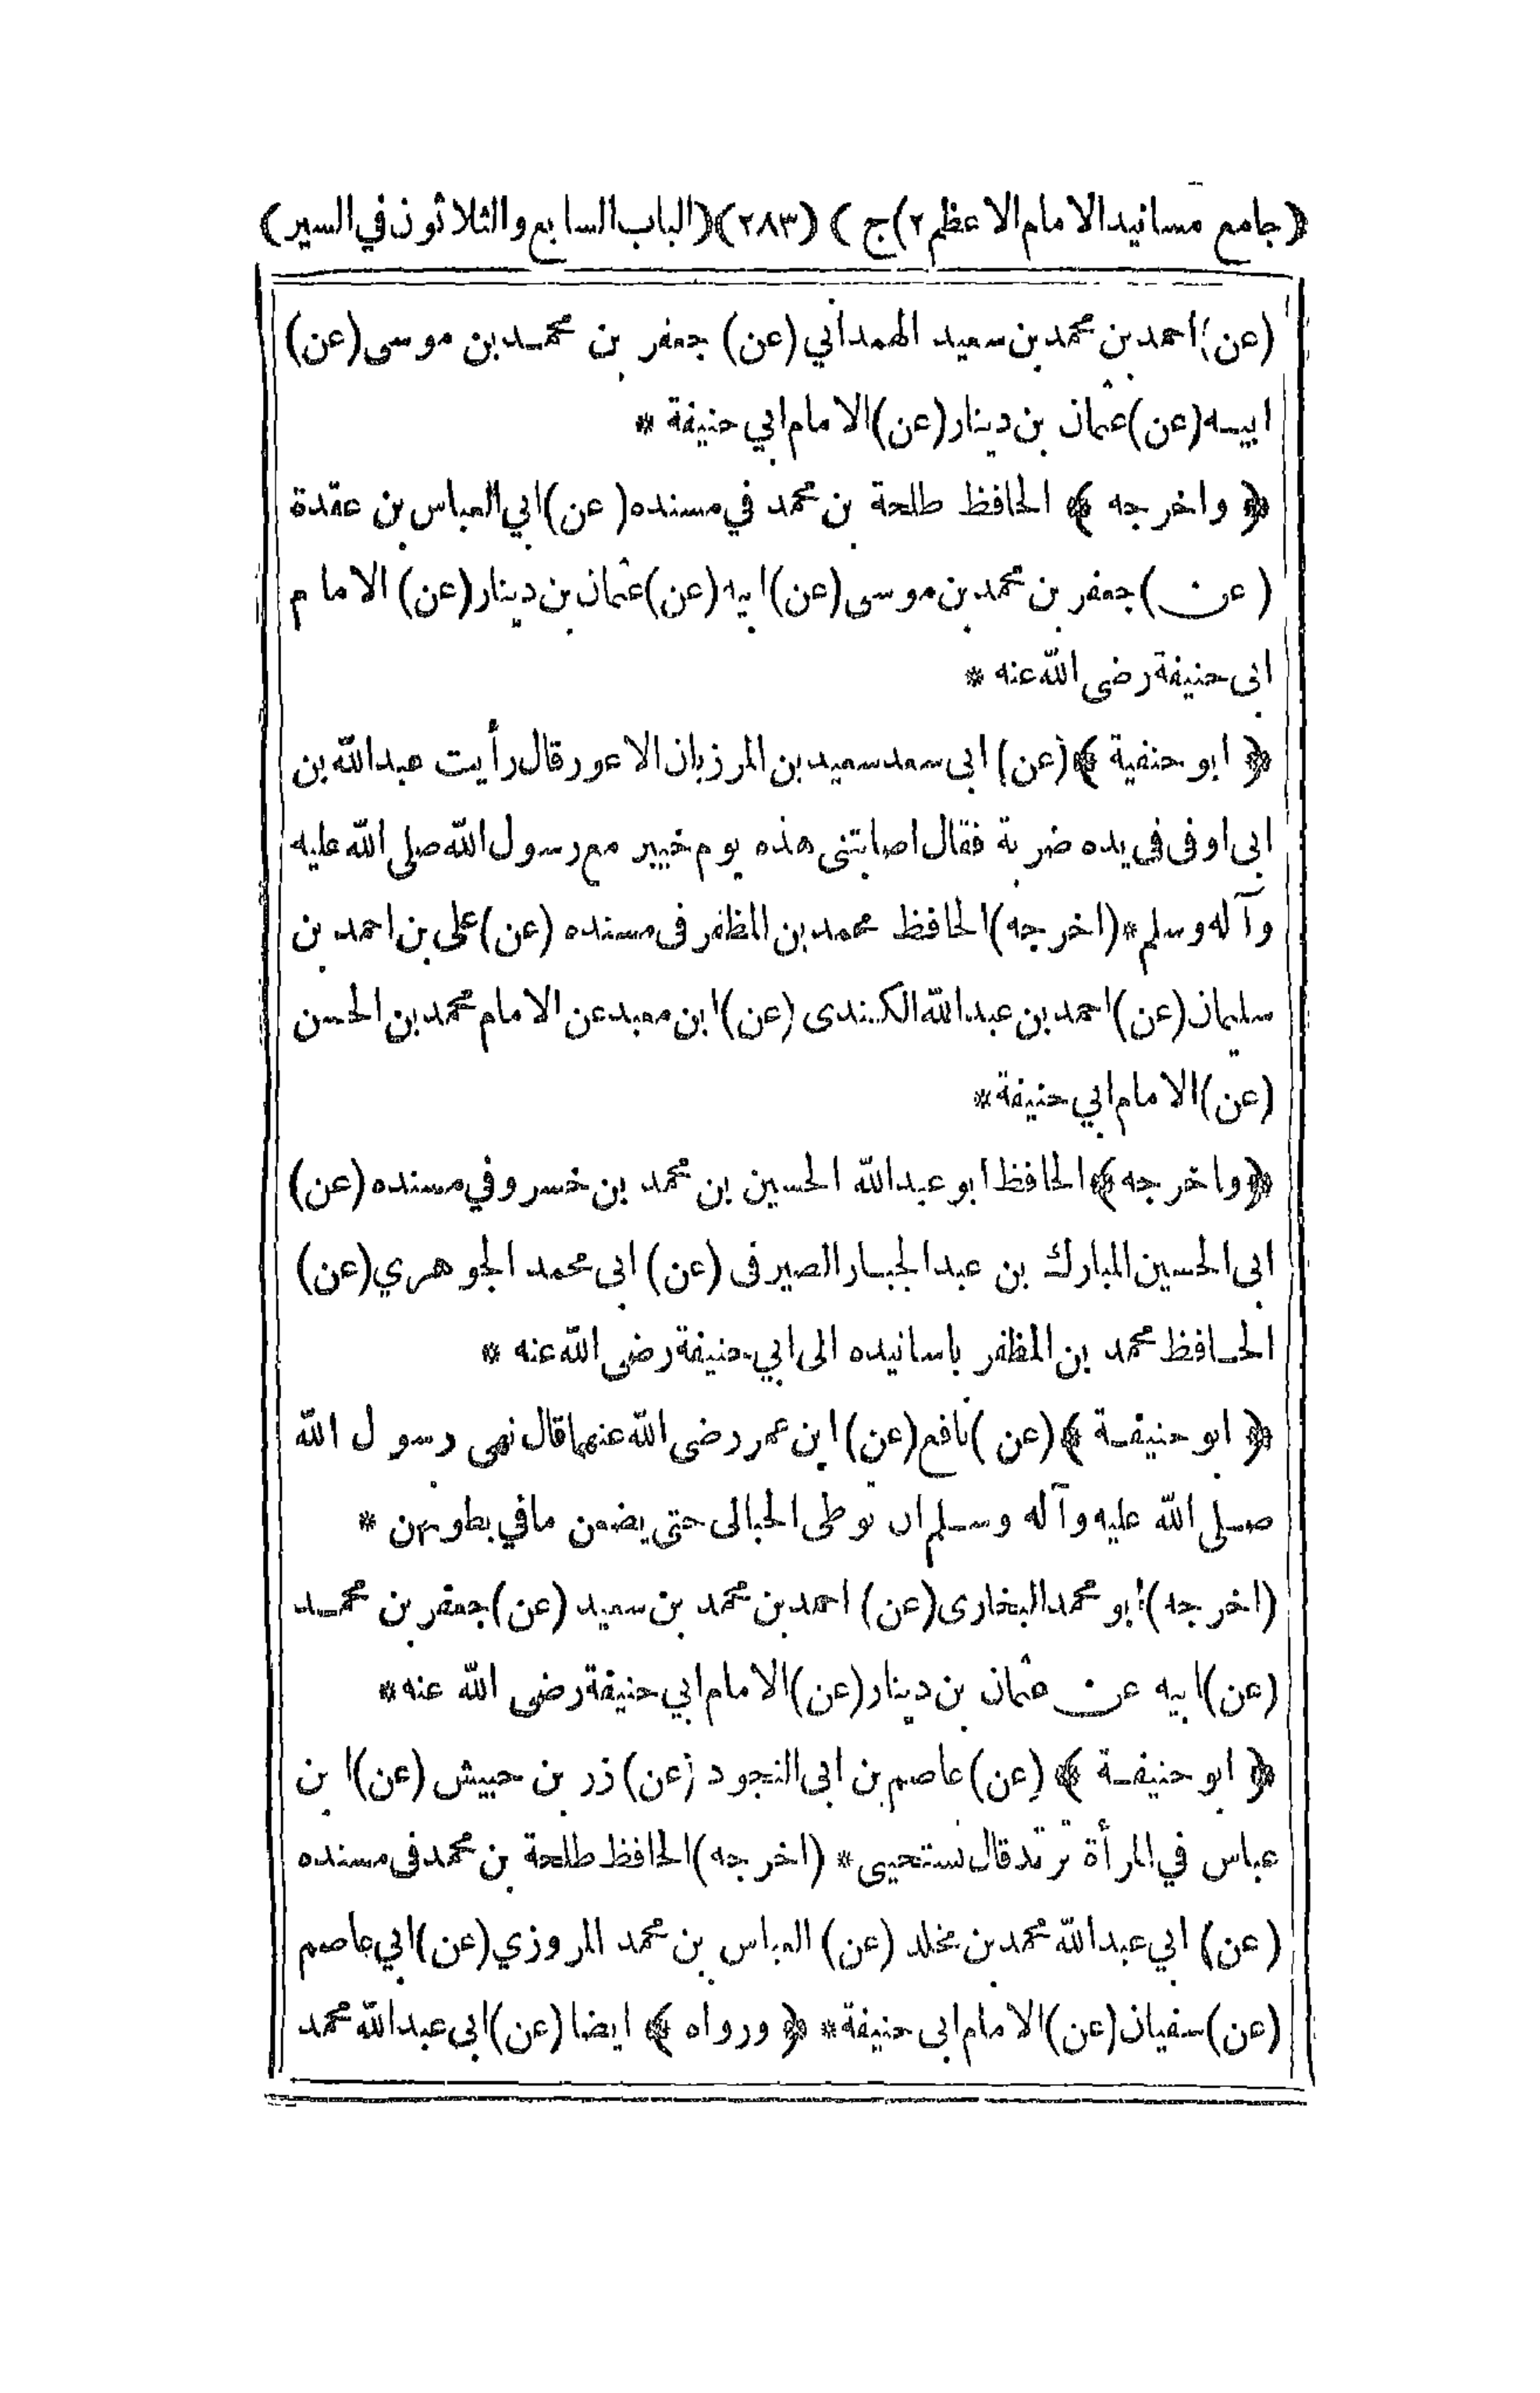 ﴿جامع مسانيد الامام الاعظم ٢) ج ﴾ (٢٨٣) (الباب السابع والثلاثون في السير﴾
(عن) احمد بن محمد بن سعيد الهمداني (عن) جعفر بن محمد بن موسى (عن)
ابيه (عن) عثمان بن دينار (عن) الامام ابي حنيفة *
﴿ واخرجه ﴾ الحافظ طلحة بن محمد في مسنده (عن) ابي العباس بن عقدة
(عن) جعفر بن محمد بن موسى (عن) ابيه (عن) عثمان بن دينار (عن) الامام
ابى حنيفة رضى الله عنه *
﴿ ابو حنفية ﴾ (عن) ابى سعد سعيد بن المرزبان الاعور قال رأيت عبد الله بن
ابى اوفى فى يده ضربة فقال اصابتنى هذه يوم خيبر مع رسول الله صلى الله عليه
وآله وسلم * (اخرجه) الحافظ محمد بن المظفر فى مسنده (عن) على بن احمد بن
سليمان (عن) احمد بن عبد الله الكندى (عن) ابن معبد عن الامام محمد بن الحسن
(عن) الامام ابي حنيفة *
﴿واخرجه﴾ الحافظ ابو عبد الله الحسين بن محمد بن خسرو في مسنده (عن)
ابى الحسين المبارك بن عبد الجبار الصيرفى (عن) ابى محمد الجوهري (عن)
الحافظ محمد بن المظفر باسانيده الى ابي حنيفة رضى الله عنه *
﴿ ابو حنيفة ﴾ (عن) نافع (عن) ابن عمر رضى الله عنهما قال نهى رسول الله
صلى الله عليه وآله وسلم ان توطى الحبالى حتى يضعن ما في بطونهن *
(اخرجه) ابو محمد البخارى (عن) احمد بن محمد بن سعيد (عن) جعفر بن محمد
(عن) ابيه عن عثمان بن دينار (عن) الامام ابي حنيفة رضى الله عنه *
﴿ ابو حنيفة ﴾ (عن) عاصم بن ابى النجود (عن) زر بن حبيش (عن) ابن
عباس في المرأة ترتد قال تستحيى * (اخرجه) الحافظ طلحة بن محمد فى مسنده
(عن) ابي عبد الله محمد بن مخلد (عن) العباس بن محمد المروزي (عن) ابي عاصم
(عن) سفيان (عن) الامام ابى حنيفة * ﴿ ورواه ﴾ ايضا (عن) ابى عبد الله محمد